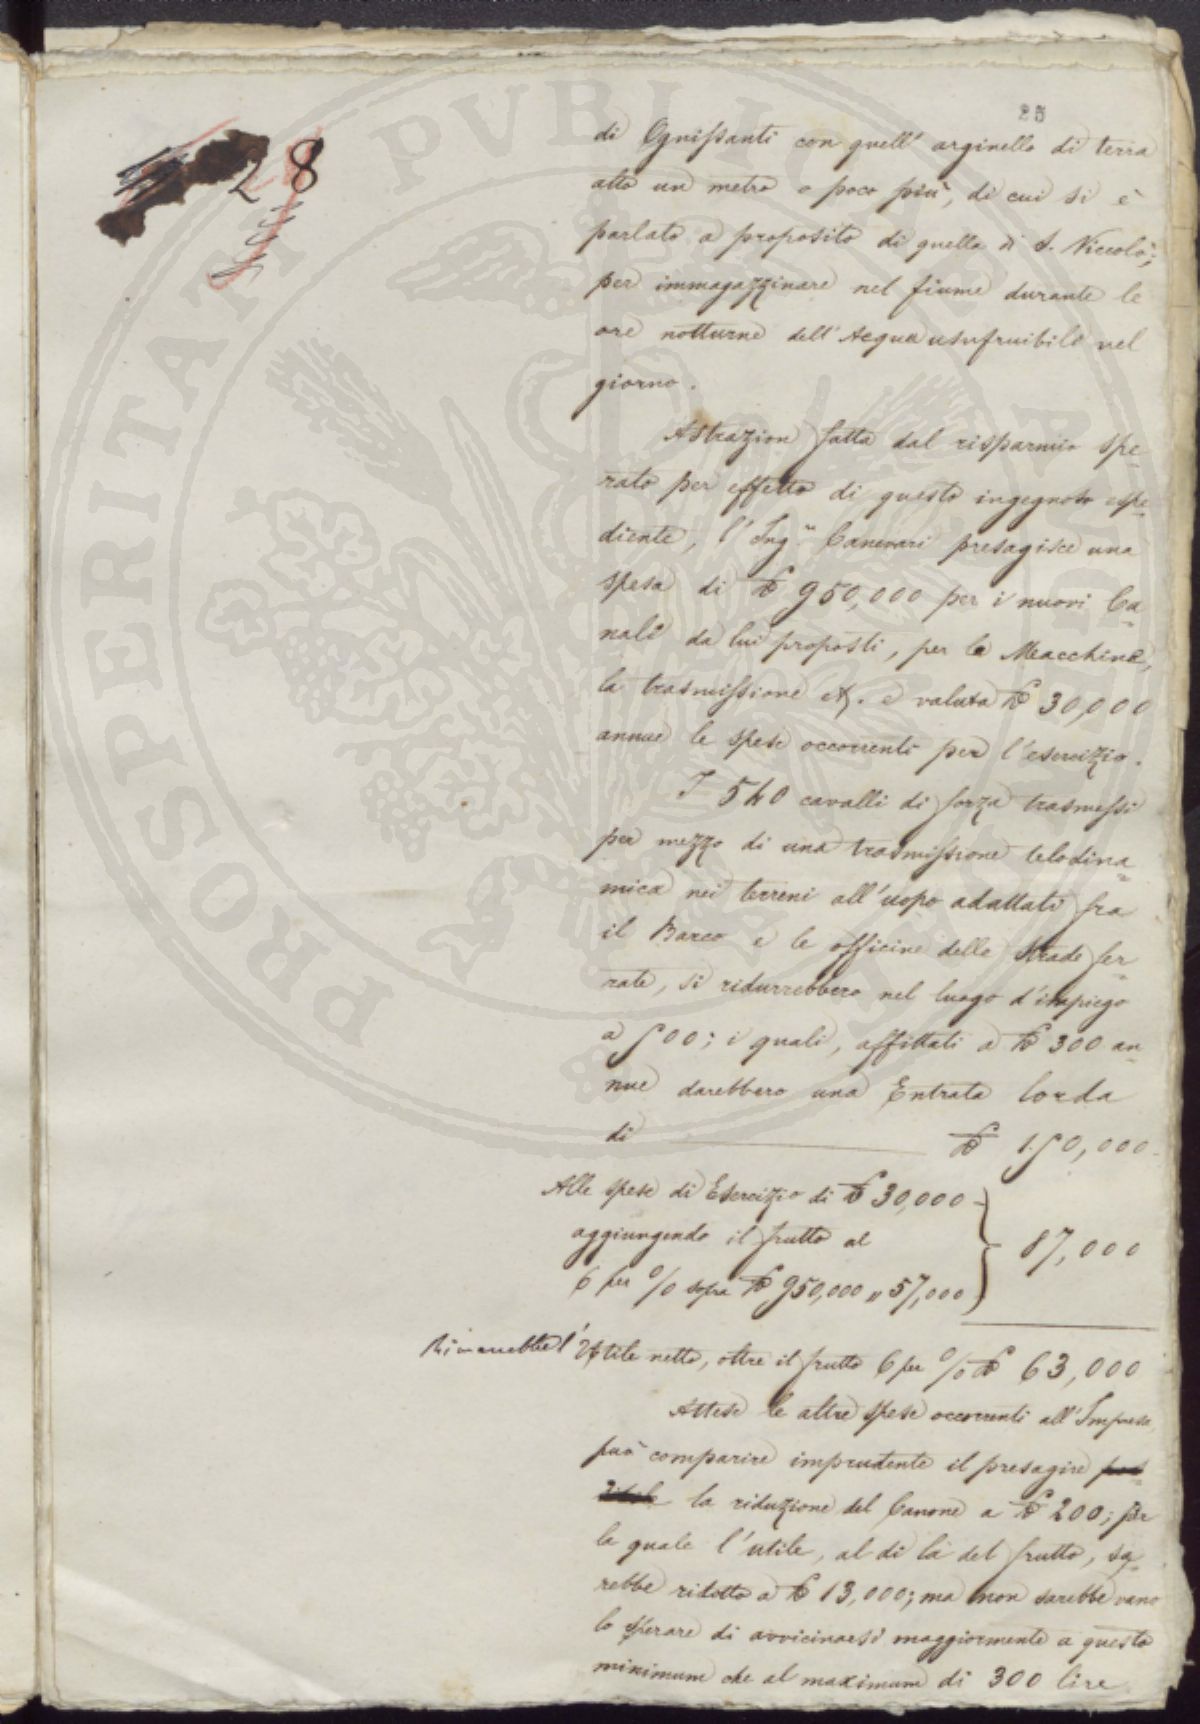 25
28
di Ognissanti con quell' arginello di terra
alto un metro o poco più, di cui si è
parlato a proposito di quella di S. Niccolò;
per immagazzinare nel fiume durante le
ore notturne dell'Acqua usufruibile nel
giorno.
Astrazion fatta dal risparmio spe-
rato per effetto di questo ingegnoso espe-
diente, l'Ing.re Canevari presagisce una
spesa di £ 950,000 per i nuovi Ca-
nali da lui proposti, per le Macchine,
la trasmissione etc. e valuta £ 30,000
annue le spese occorrenti per l'esercizio.
I 540 cavalli di forza trasmessi
per mezzo di una trasmissione telodina-
mica nei terreni all'uopo adattati fra
il Barco e le officine delle Strade fer-
rate, si ridurrebbero nel luogo d'impiego
a 500; i quali, affittati a £ 300 an-
nue darebbero una Entrata lorda
di £ 150,000.
Alle spese di Esercizio di £ 30,000
aggiungendo il frutto al
6 per % sopra £ 950,000 „ 57,000
87,000
Rimarrebbe l'Utile netto, oltre il frutto 6 per % £ 63,000
Attese le altre spese occorrenti all'Impresa
può comparire imprudente il presagire
la riduzione del Canone a £ 200; per
la quale l'utile, al di là del frutto, sa-
rebbe ridotto a £ 13,000; ma non sarebbe vano
lo sperare di avvicinarsi maggiormente a questo
minimum che al maximum di 300 lire
PROSPERITATI PVBLICAE